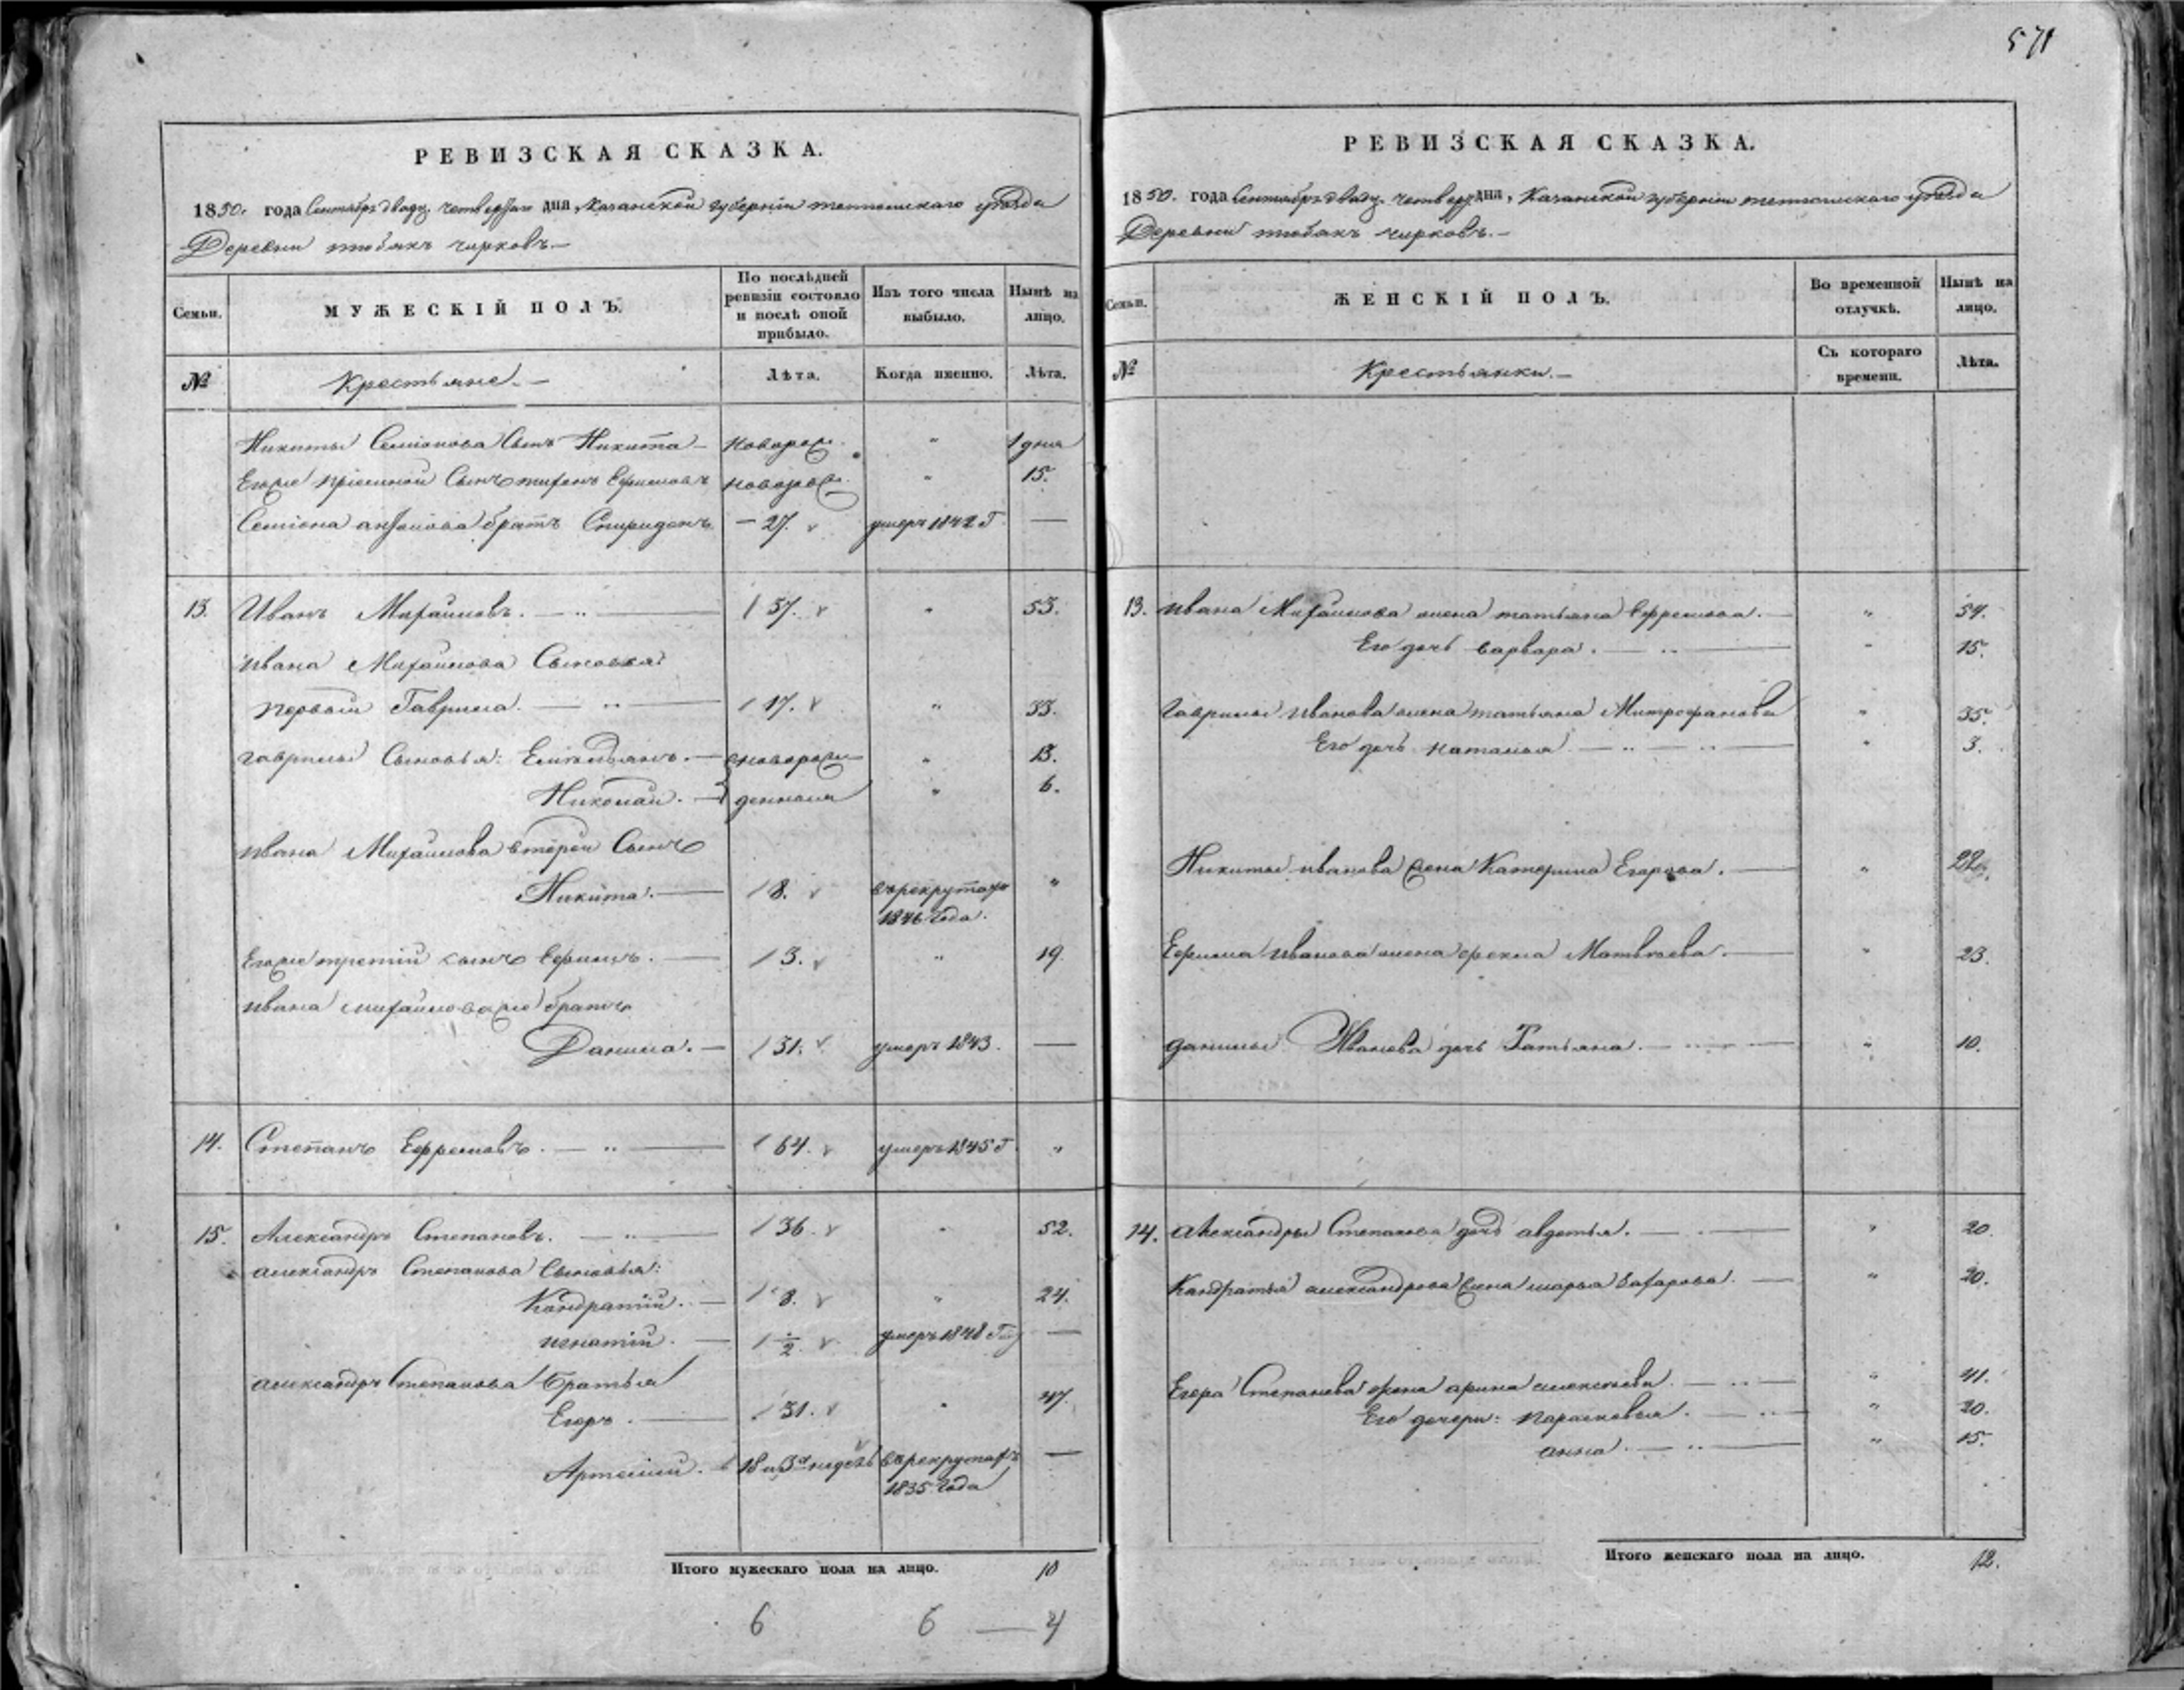 571
РЕВИЗСКАЯ СКАЗКА.
1850. года Сентября двадц. четвертаго дня, Казанской губернiи тетюшскаго уѣзда
Деревни тюбякъ чирковъ.—
Семьи.
МУЖЕСКІЙ ПОЛЪ.
По послѣдней ревизіи состояло и послѣ оной прибыло.
Изъ того числа выбыло.
Нынѣ на лицо.
№
Крестьяне.—
Лѣта.
Когда именно.
Лѣта.
Никиты Семіонова Сынъ Никита — новорож. " 1 дня
Егоже пріемной Сынъ Ефимовъ новорож. " 15.
Семіона братъ Спиридонъ — 27. умеръ 1842 Г. —
13. Иванъ Михайловъ. — 37. " 53.
Ивана Михайлова Сыновья:
первой Гаврила. — 17. " 33.
Гаврилы Сыновья: Емельянъ. — новорож " 13.
Николай. — денныя " 6.
Ивана Михайлова второй Сынъ
Никита. — 8. въ рекрутахъ "
1846 года.
Егоже третій сынъ Ефимъ. — 3. " 19.
Ивана Михайлова же братъ
Данила. — 31. умеръ 1843. —
14. Степанъ Ефремовъ. — 64. умеръ 1845 Г. "
15. Александръ Степановъ. — 36. " 52.
Александръ Степанова Сыновья:
Кондратій. — 8. " 24.
Игнатій. — 1/2. умеръ 1848 —
Александръ Степанова братья
Егоръ. — 31. " 47.
Артемій. 18 и 3 недель въ рекрутахъ —
1835 года
Итого мужескаго пола на лицо. 10
6 6 — 4
РЕВИЗСКАЯ СКАЗКА.
1850. года Сентября двадц. четверт дня, Казанской губерніи тетюшскаго уѣзда
Деревни тюбякъ чирковъ.—
Семьи.
ЖЕНСКІЙ ПОЛЪ.
Во временной отлучкѣ.
Нынѣ на лицо.
№
Крестьянки.—
Съ котораго времени.
Лѣта.
13. Ивана Михайлова жена татьяна Ефремова. — " 54.
Его дочь варвара. — " 15.
Гаврилы Иванова жена татьяна Митрофанова " 35.
Его дочь наталья — " 3.
Никиты иванова жена Катерина Егорова. — " 22.
Ефима Иванова жена фекла Матвѣева. — " 23.
Данилы Иванова дочь Татьяна. — " 10.
14. Александры Степанова дочь авдотья. — " 20.
Кондратья александрова жена марья Захарова. — " 20.
Егора Степанова жена арина алексѣева. — " 41.
Его дочери: парасковья. — " 20.
анна. — " 15.
Итого женскаго пола на лицо. 12.